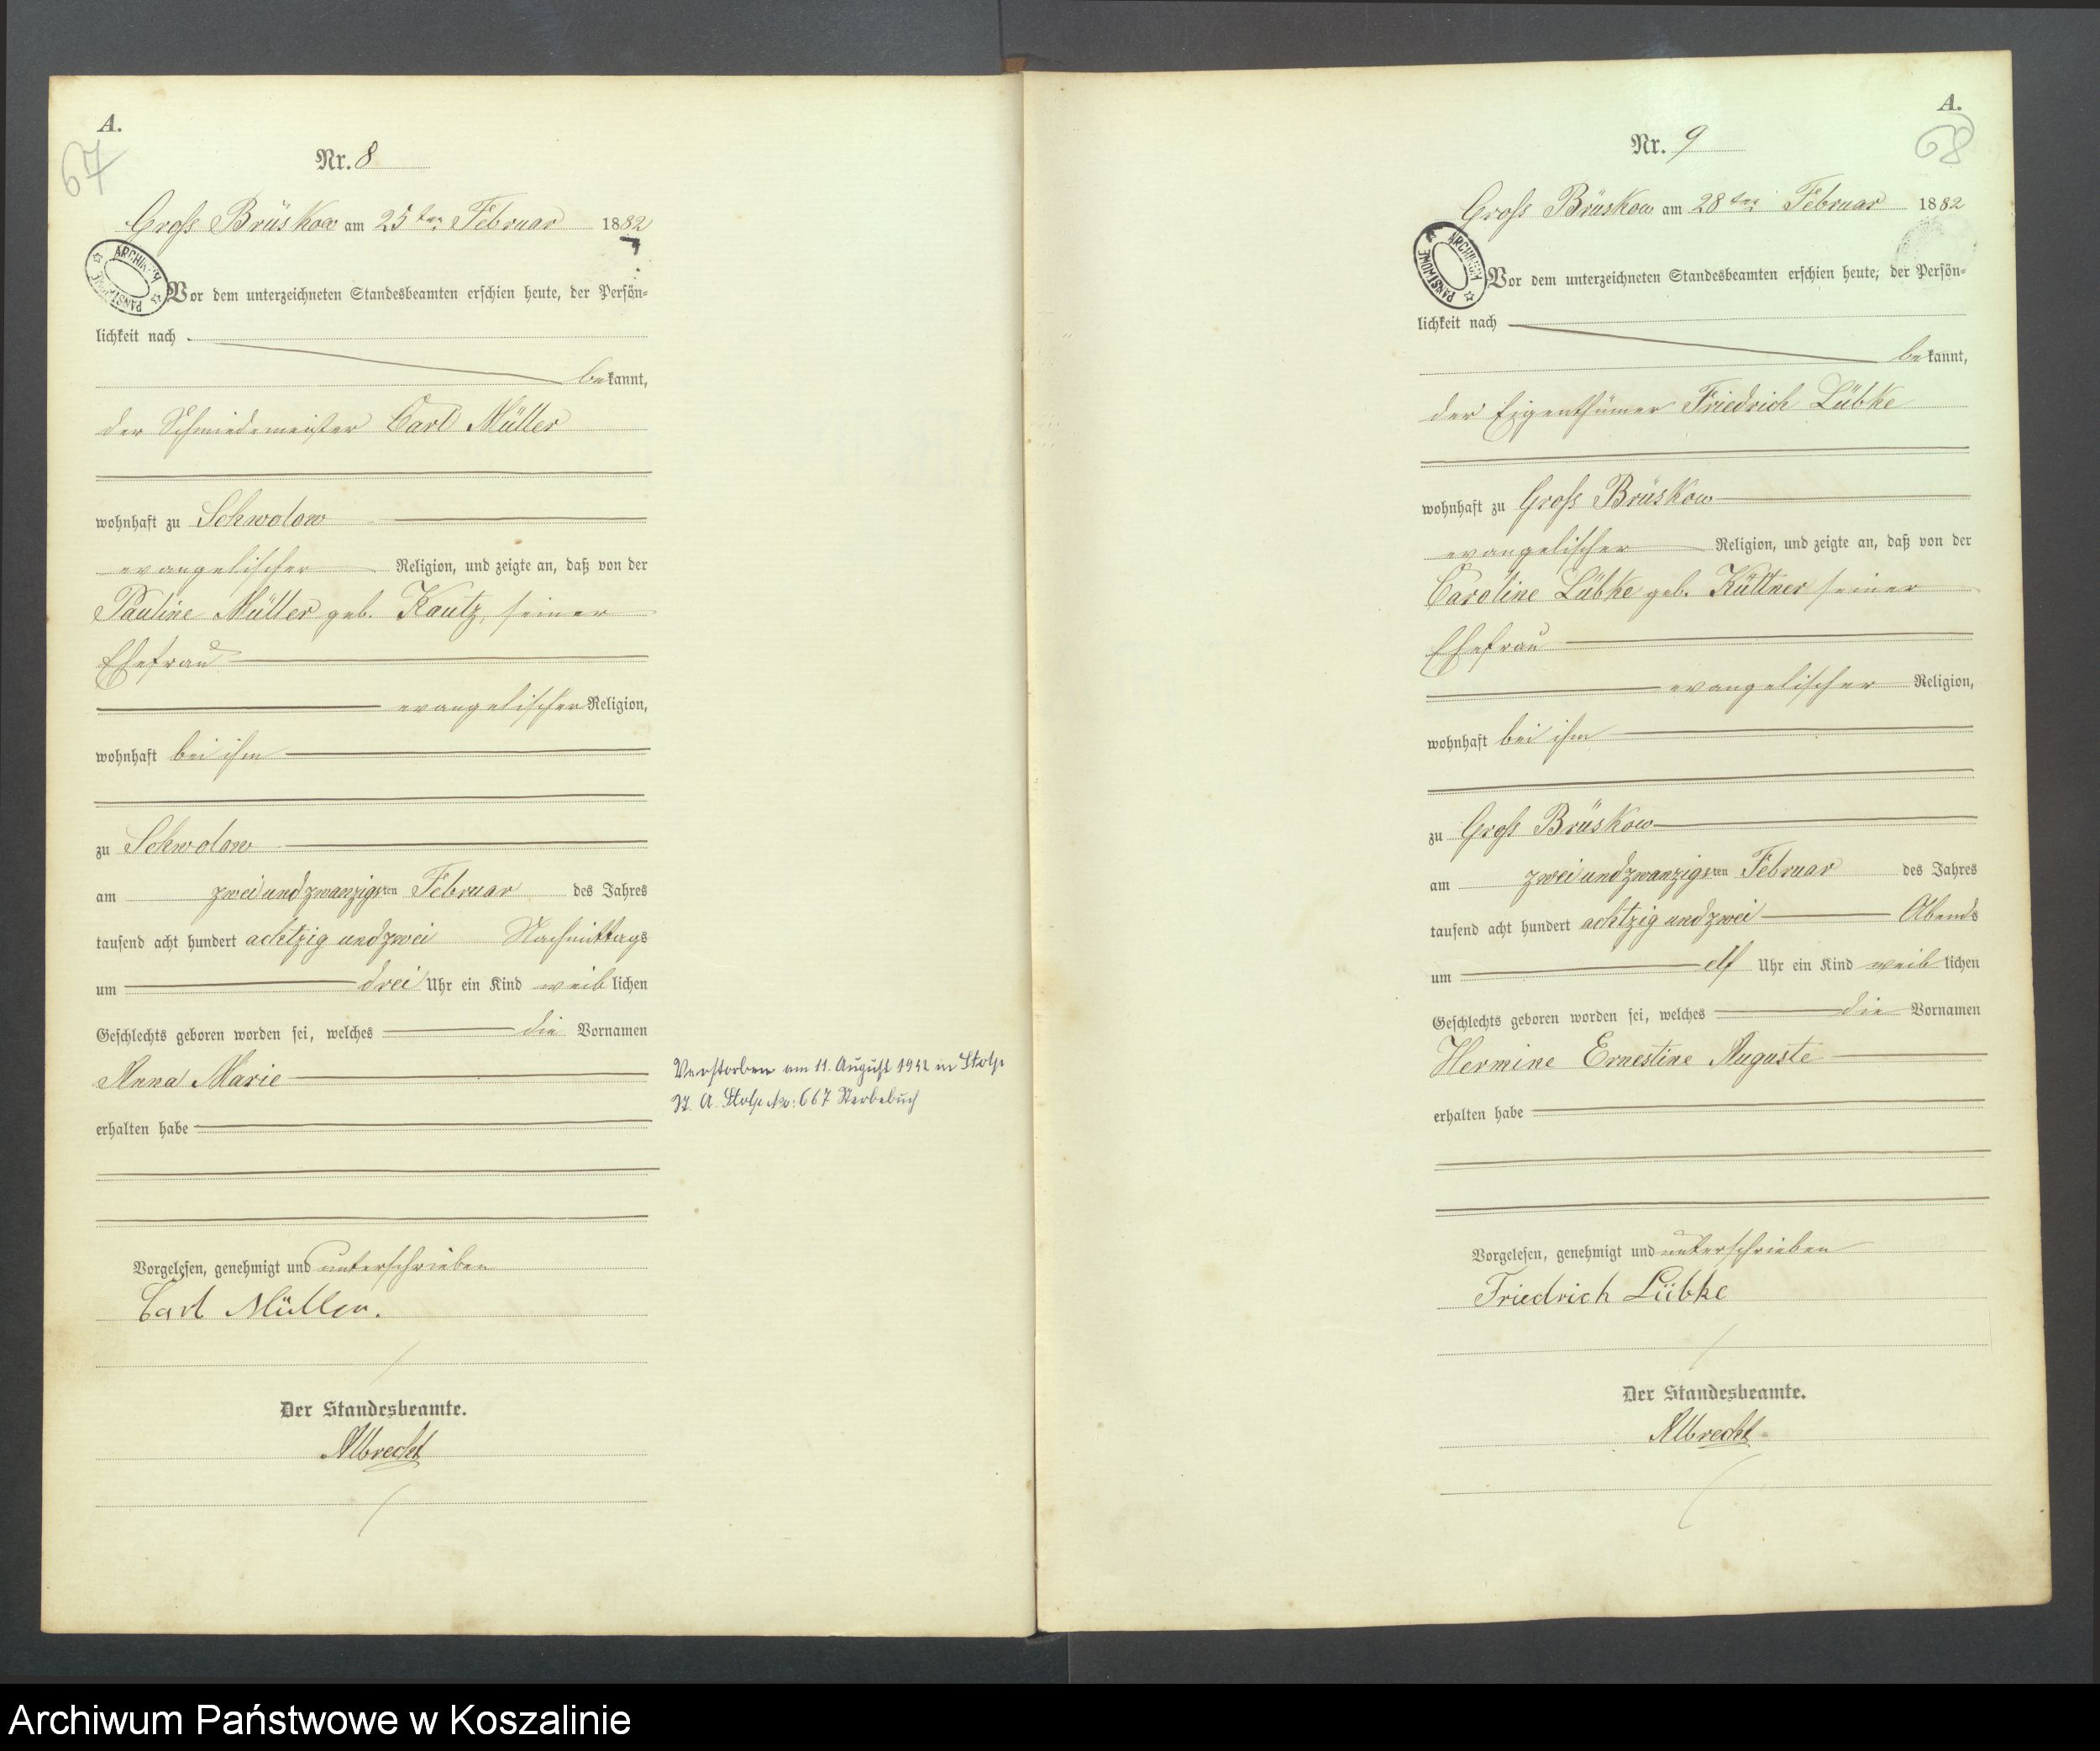 A.
67
Nr. 8
Groß Brüskow am 25ten Februar 1882
ARCHIWUM PAŃSTWOWE
Vor dem unterzeichneten Standesbeamten erschien heute, der Persön=
lichkeit nach
bekannt,
der Schmiedemeister Carl Müller
wohnhaft zu Schwolow
evangelischer Religion, und zeigte an, daß von der
Pauline Müller geb. Kautz, seiner
Ehefrau
evangelischer Religion,
wohnhaft bei ihm
zu Schwolow
am zwei und zwanzigsten Februar des Jahres
tausend acht hundert achtzig und zwei Nachmittags
um drei Uhr ein Kind weiblichen
Geschlechts geboren worden sei, welches die Vornamen
Anna Marie
erhalten habe
Vorgelesen, genehmigt und unterschrieben
Carl Müller.
Der Standesbeamte.
Albrecht
Verstorben am 11. August 1942 in Stolp
St. A. Stolp No: 667 Sterbebuch
A.
68
Nr. 9
Groß Brüskow am 28ten Februar 1882
ARCHIWUM PAŃSTWOWE
Vor dem unterzeichneten Standesbeamten erschien heute, der Persön=
lichkeit nach
bekannt,
der Eigenthümer Friedrich Lübke
wohnhaft zu Groß Brüskow
evangelischer Religion, und zeigte an, daß von der
Caroline Lübke geb. Küttner seiner
Ehefrau
evangelischer Religion,
wohnhaft bei ihm
zu Groß Brüskow
am zwei und zwanzigsten Februar des Jahres
tausend acht hundert achtzig und zwei Abends
um elf Uhr ein Kind weiblichen
Geschlechts geboren worden sei, welches die Vornamen
Hermine Ernestine Auguste
erhalten habe
Vorgelesen, genehmigt und unterschrieben
Friedrich Lübke
Der Standesbeamte.
Albrecht
Archiwum Państwowe w Koszalinie